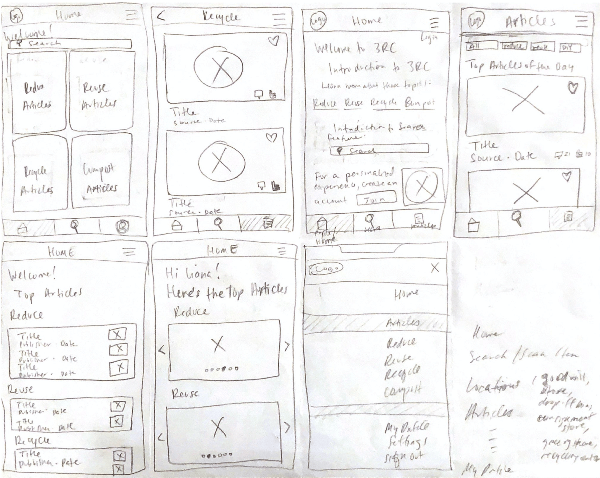 Logo Home
Welcome!
Search
Reduce
Articles
Reuse
Articles
Recycle
Articles
Compost
Articles
Recycle
Title
Source · Date
Title
Source · Date
Logo Home
Login
Welcome to 3RC
Introduction to 3RC
Learn more about these topics:
Reduce Reuse Recycle Compost
Introduction to Search
Feature:
Search
For a personalized
experience, create an
account Join
Logo Articles
All
Top Articles of the Day
Title
Source · Date
HOME
Welcome!
Top Articles
Reduce
Title
Publisher · Date
Title
Publisher · Date
Title
Publisher · Date
Reuse
Title
Publisher · Date
Title
Publisher · Date
Recycle
Title
Publisher · Date
HOME
Hi Liane!
Here's the Top Articles
Reduce
Reuse
Logo
Home
Articles
Reduce
Reuse
Recycle
Compost
My Profile
Settings
Sign out
Home
Search / Scan Item
Locations
goodwill,
store,
drop-off bins,
consignment
store,
Articles
My Profile